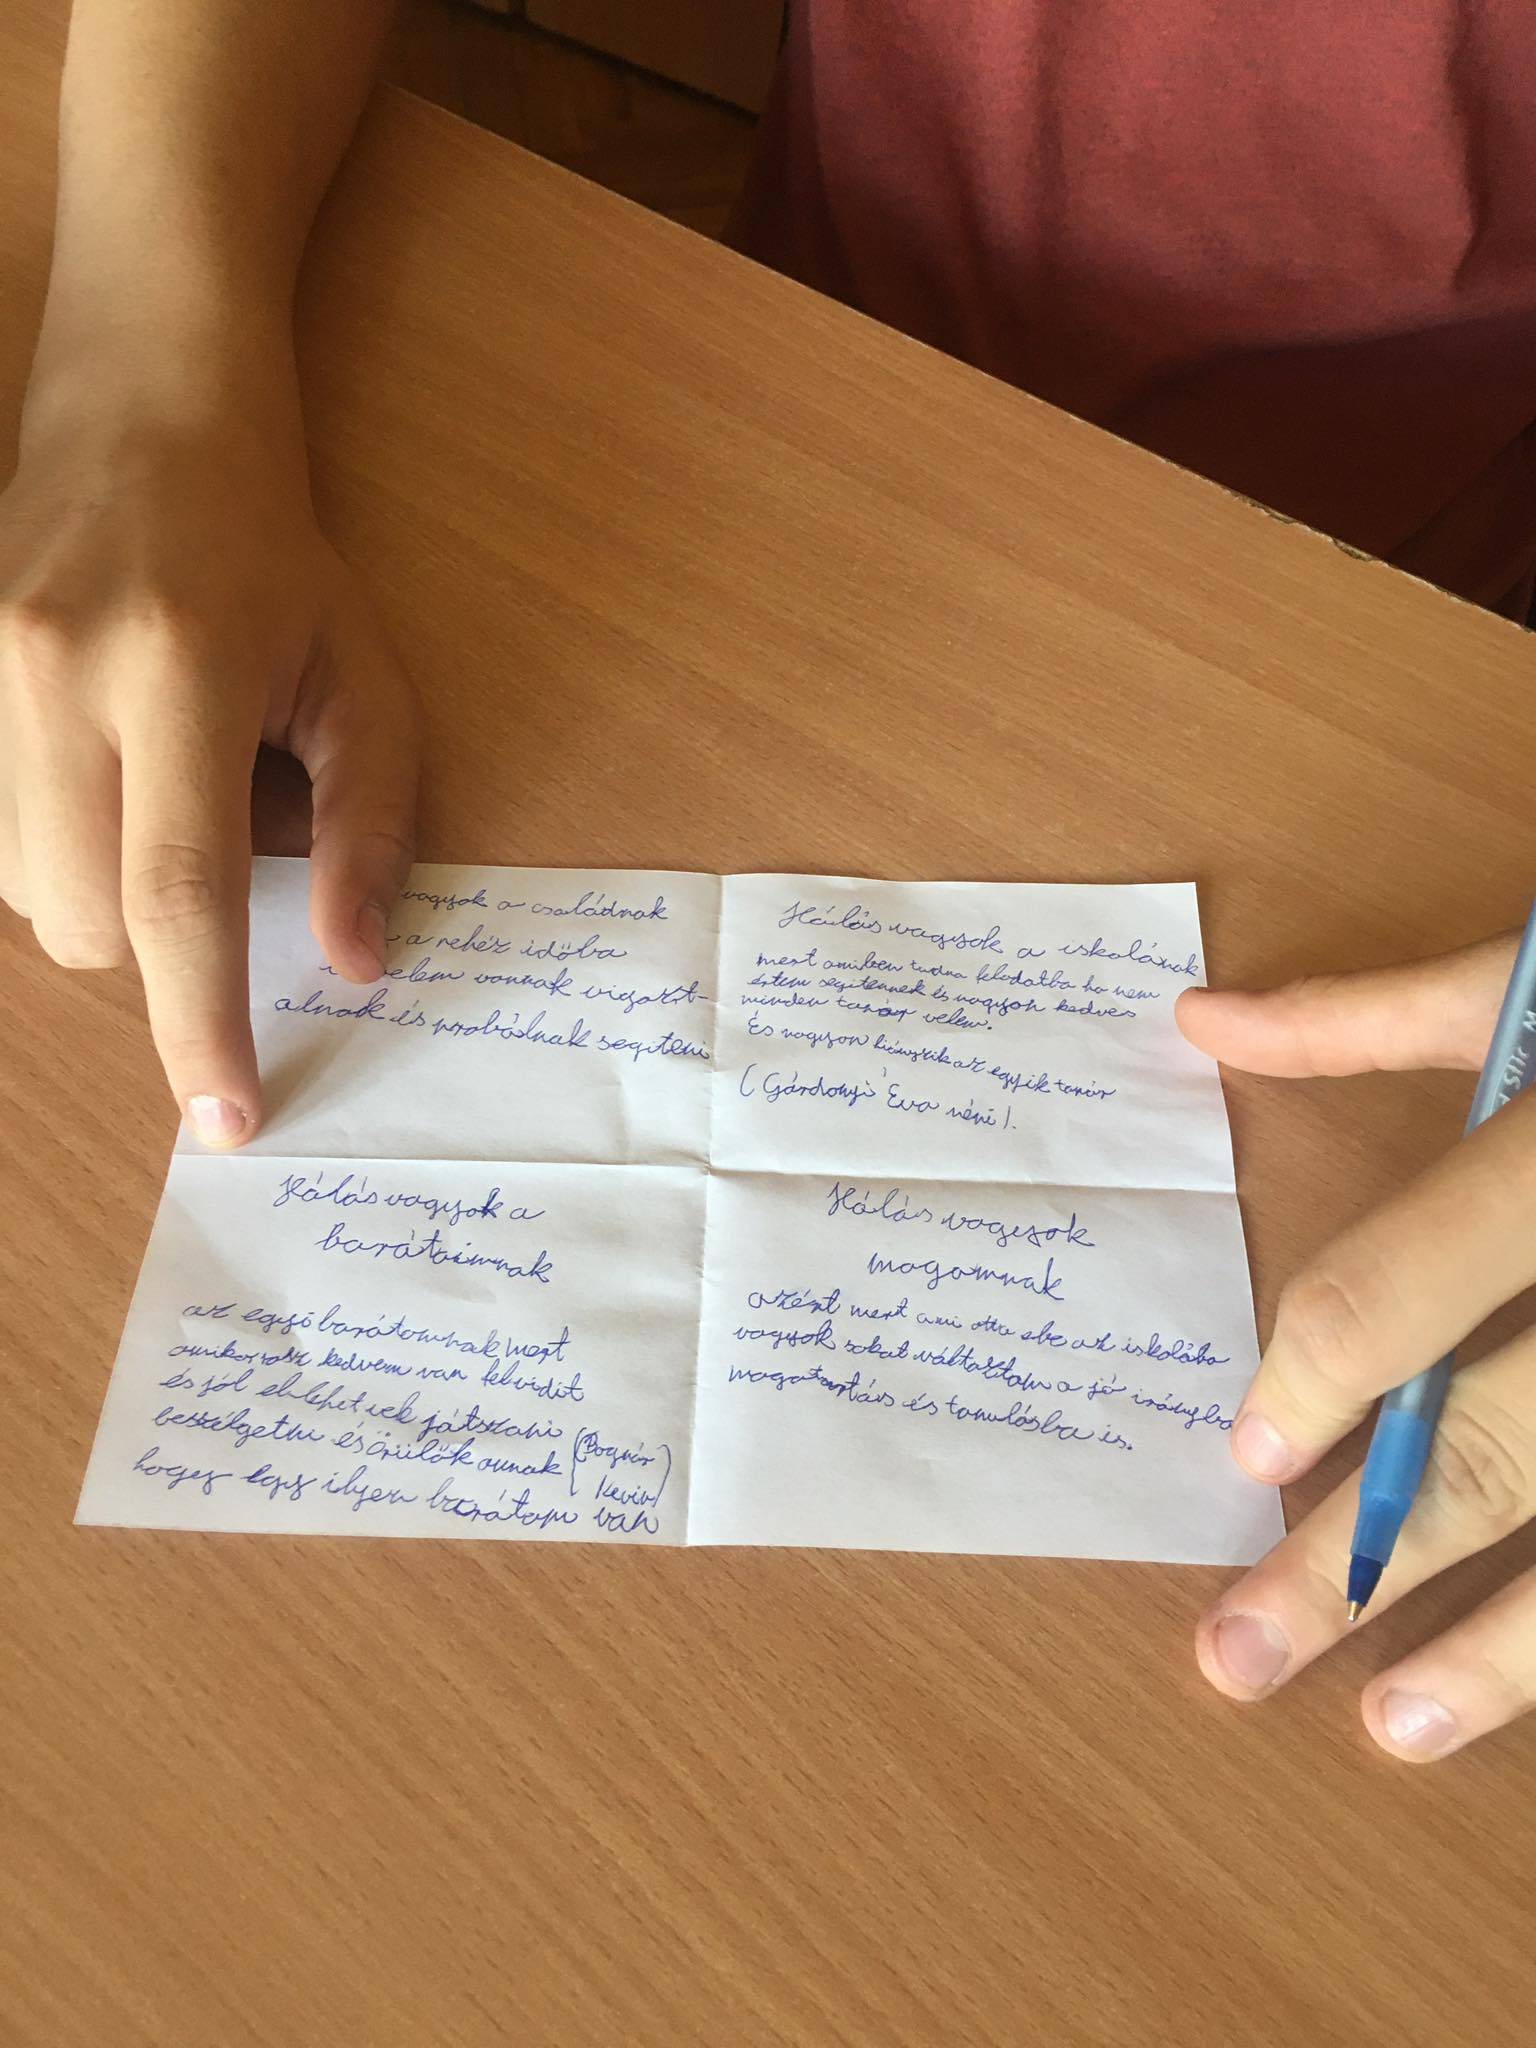 vagyok a családnak
a nehéz időba
velem vannak vigaszt-
alnak és probálnak segiteni
Hálás vagyok a iskolának
mert amiben tudna feladatba ha nem
értem segitennek és nagyon kedves
minden tanár velem.
És nagyon hiányzik az egyik tanár
(Gárdonyi Éva néni).
Hálás vagyok a
barátaimnak
az egyő barátomnak mert
amikor rosz kedvem van felvidit
és jól ellehet vek játszani
beszélgetni és örülök annak (Bognár
Kevin)
hogy egy ilyen barátom van
Hálás vagyok
magamnak
azért mert ami otta ebe az iskolába
vagyok sokat változtam a jó irányba
magatartás és tanulásba is.
BIC